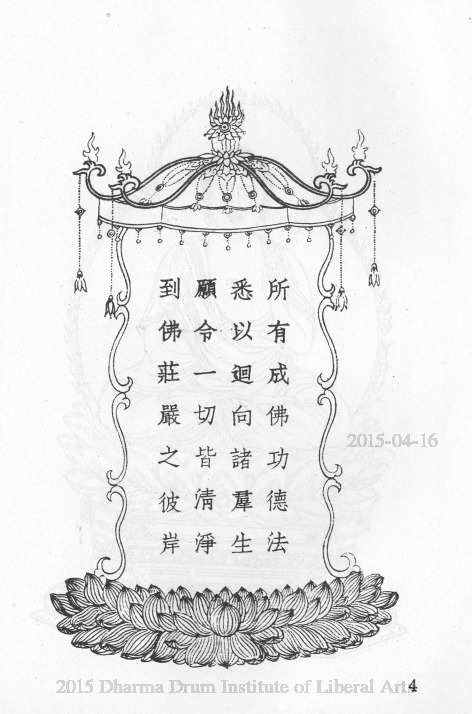 所有成佛功德法
悉以迴向諸羣生
願令一切皆清淨
到佛莊嚴之彼岸
2015-04-16
2015 Dharma Drum Institute of Liberal Arts
4